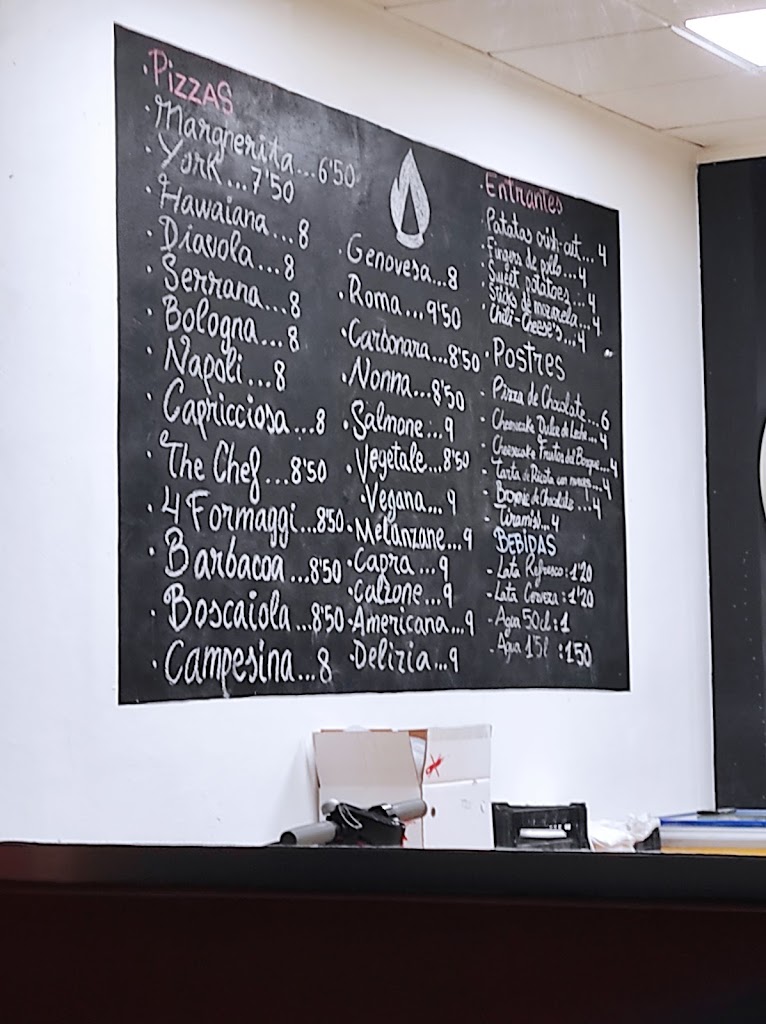 · PIZZAS
· Margherita...6'50
· York...7'50
· Hawaiana...8
· Diavola...8
· Serrana...8
· Bologna...8
· Napoli...8
· Capricciosa...8
· The Chef...8'50
· 4 Formaggi...8'50
· Barbacoa...8'50
· Boscaiola...8'50
· Campesina...8
· Genovesa...8
· Roma...9'50
· Carbonara...8'50
· Nonna...8'50
· Salmone...9
· Vegetale...8'50
· Vegana...9
· Melanzane...9
· Capra...9
· Calzone...9
· Americana...9
· Delizia...9
· Entrantes
· Patatas crish-cut...4
· Fingers de pollo...4
· Sweet potatoes...4
· Sticks de mozarela...4
· Chili-Cheese's...4
· Postres
- Pizza de Chocolate...6
- Cheesecake Dulce de Leche...4
- Cheesecake Frutos del Bosque...4
- Tarta de Ricota con...4
- Brownie de Chocolate...4
- Tiramisú...4
BEBIDAS
- Lata Refresco: 1'20
- Lata Cerveza: 1'20
- Agua 50cl: 1
- Agua 1'5l: 1'50